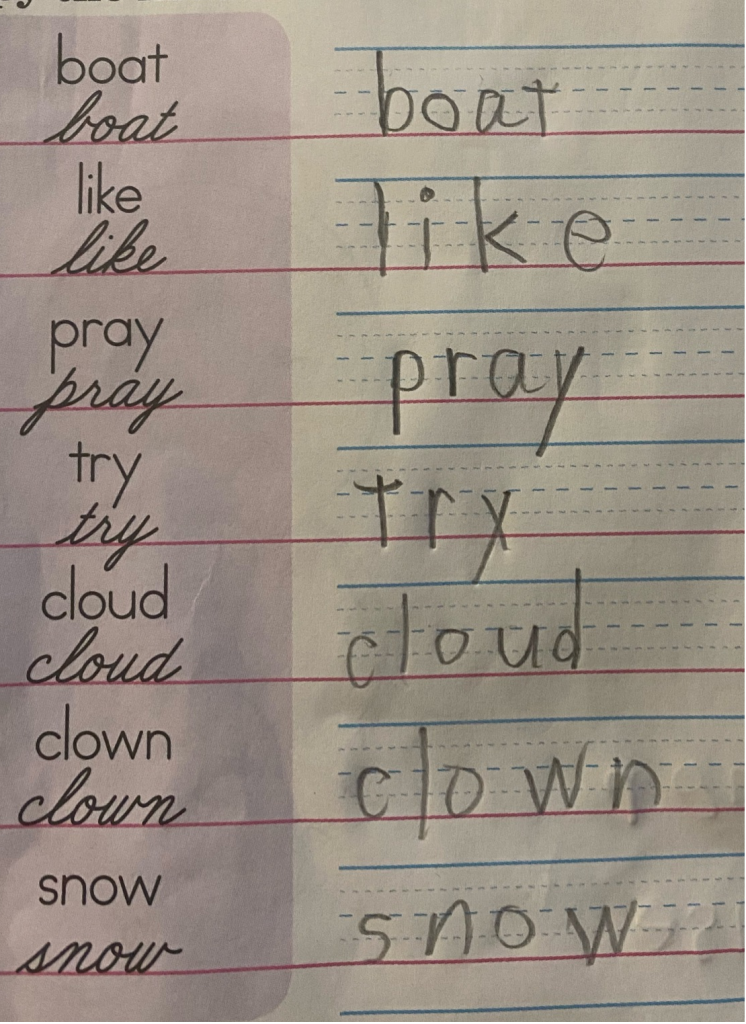 boat
boat boat
like
like like
pray
pray pray
try
try try
cloud
cloud cloud
clown
clown clown
snow
snow snow